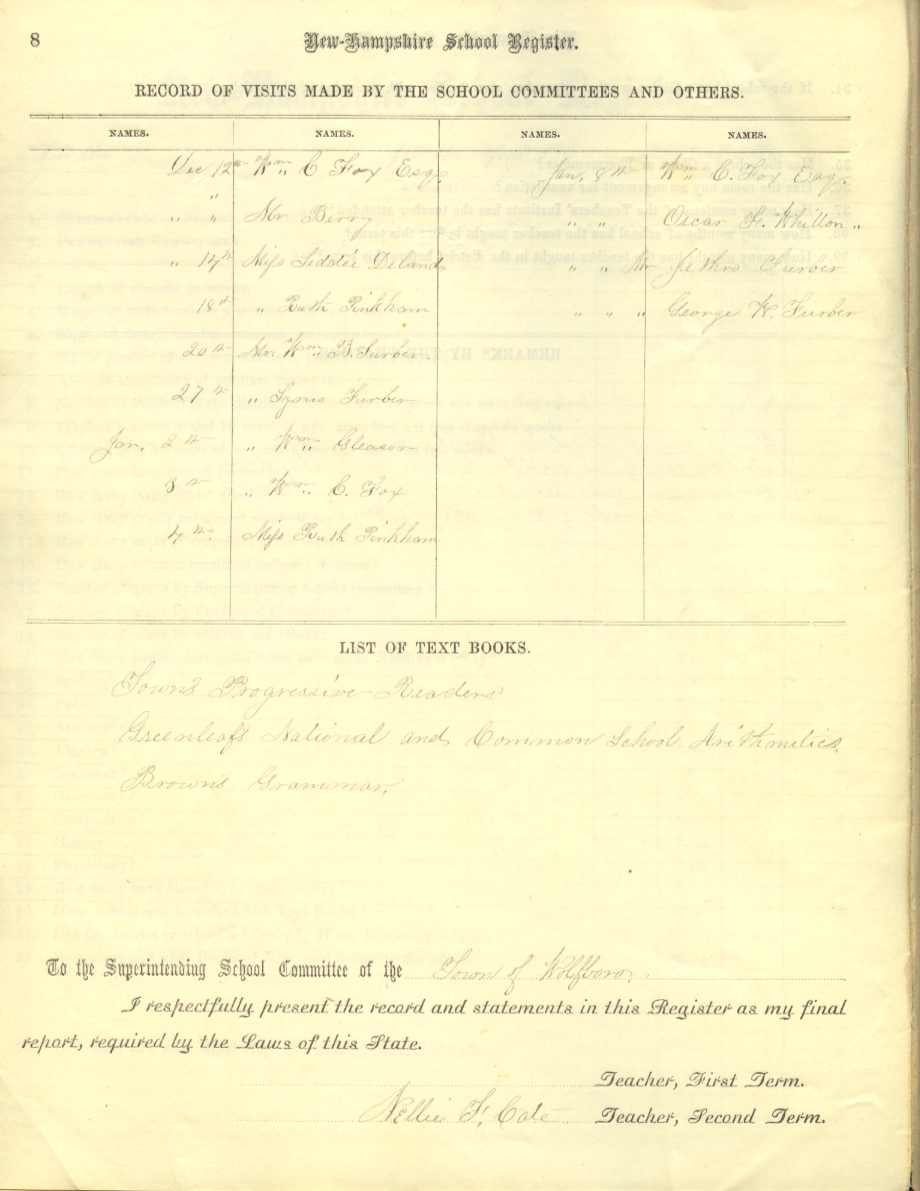 8
New-Hampshire School Register.
RECORD OF VISITS MADE BY THE SCHOOL COMMITTEES AND OTHERS.
NAMES. NAMES. NAMES. NAMES.
Dec 12th Wm C Fox Esq. Jan, 8th Wm C. Fox Esq.
"
" " Mr Berry " " Oscar F. Whitton "
" 14th Miss Deland " " Mr Jethro Furber
18th " Ruth Pinkham " " " George W. Furber
20th Mr. Wm B. Furber
27th " Cyrus Furber
Jan, 2th " Wm Gleason
3th " Wm C. Fox
4th. Miss Ruth Pinkham
LIST OF TEXT BOOKS.
Town's Progressive Readers
Greenleafs National and Common School Arithmetics.
Browns Grammar.
To the Superintending School Committee of the Town of Wolfboro.
I respectfully present the record and statements in this Register as my final
report, required by the Laws of this State.
Teacher, First Term.
Nellie F. Cate Teacher, Second Term.